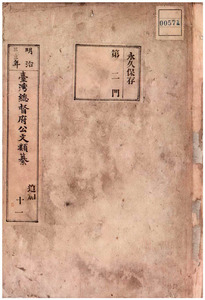 00574
永久保存
第二門
明治
三年
臺灣總督府公文類纂
追加
十一